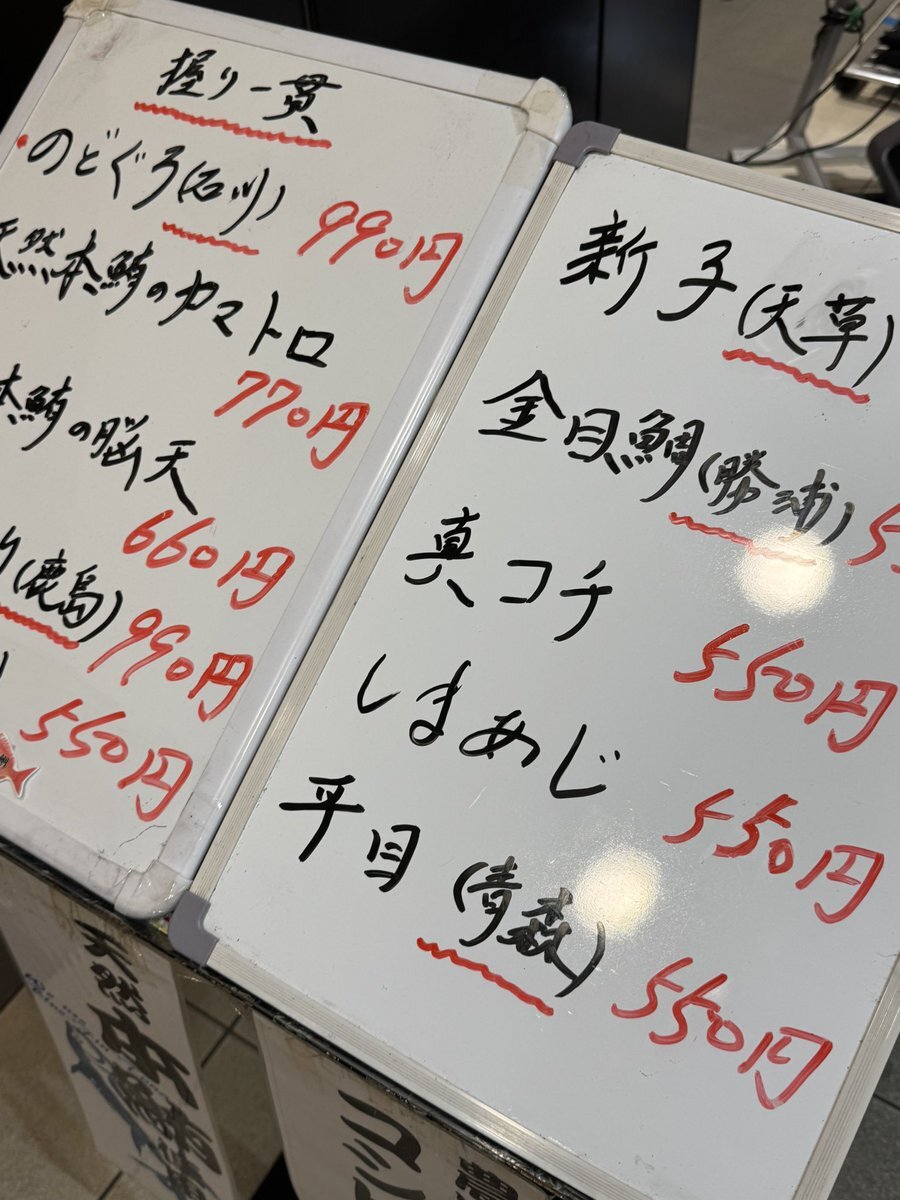 握り一貫
のどぐろ(石川)
990円
天然本鮪のカマトロ
770円
本鮪の脳天
660円
(鹿島)
990円
550円
新子(天草)
金目鯛(勝浦)
真コチ
550円
しまあじ
550円
平目(青森)
550円
天然本鮪